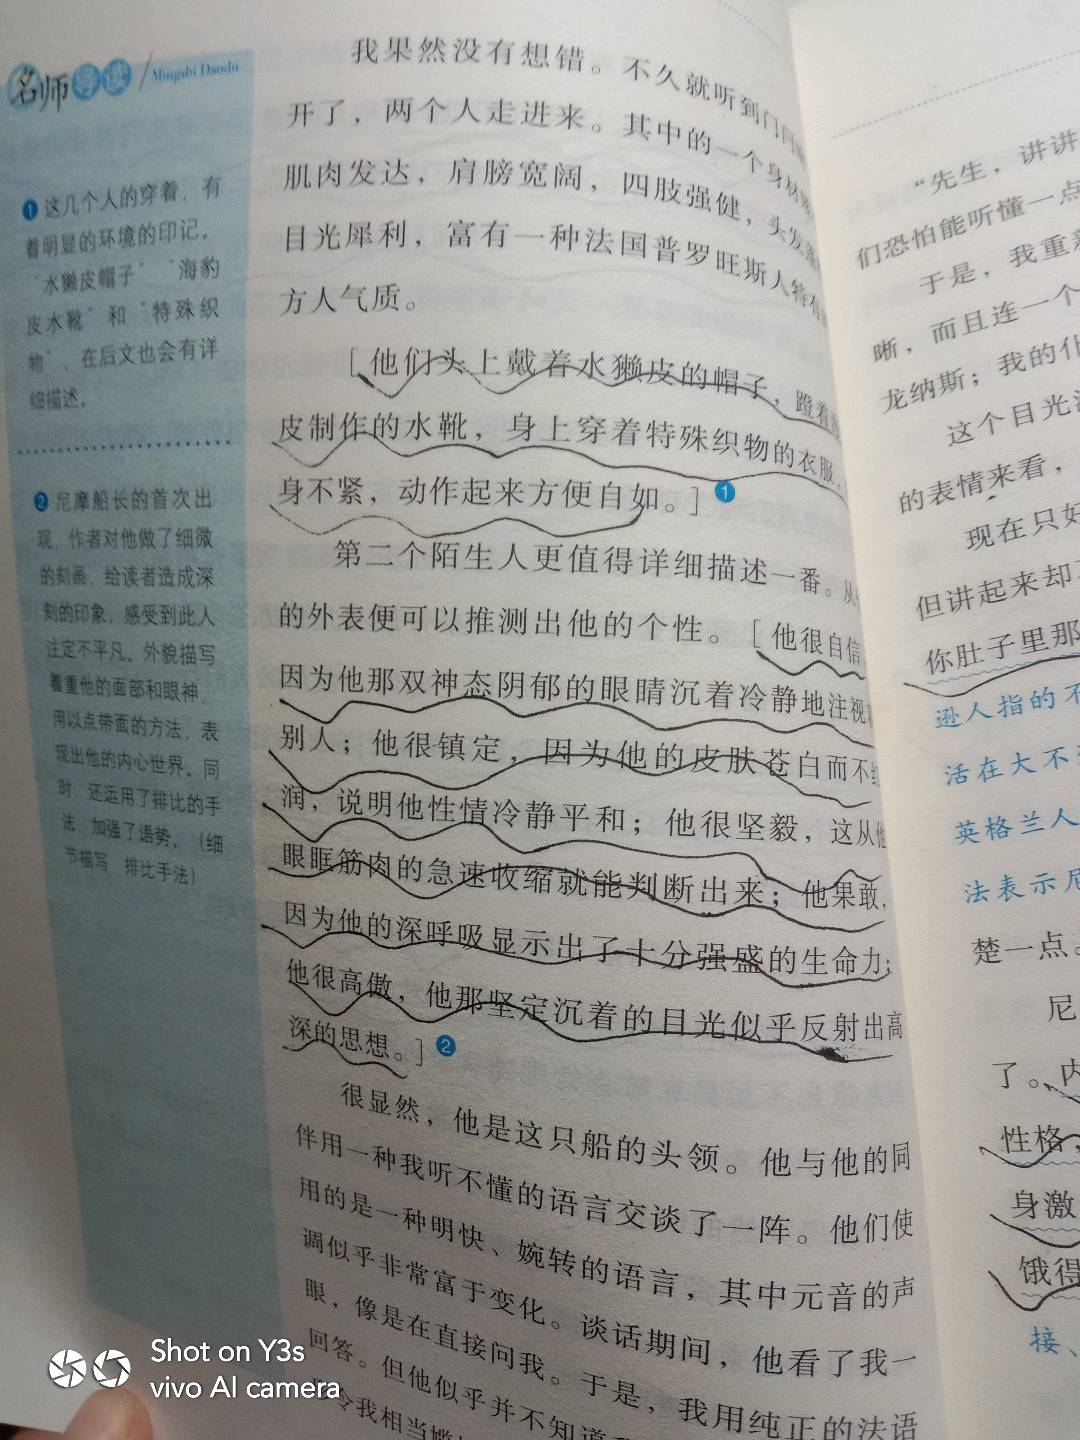 名师导读 Mingshi Daodu
❶这几个人的穿着，有
着明显的环境的印记。
“水獭皮帽子”“海豹
皮水靴”和“特殊织
物”，在后文也会有详
细描述。
❷尼摩船长的首次出
现，作者对他做了细微
的刻画，给读者造成深
刻的印象，感受到此人
注定不平凡。外貌描写
着重他的面部和眼神，
用以点带面的方法，表
现出他的内心世界。同
时，还运用了排比的手
法，加强了语势。（细
节描写 排比手法）
我果然没有想错。不久就听到门
开了，两个人走进来。其中的一个身材
肌肉发达，肩膀宽阔，四肢强健，头发
目光犀利，富有一种法国普罗旺斯人特有
方人气质。
［他们头上戴着水獭皮的帽子，蹬着
皮制作的水靴，身上穿着特殊织物的衣服，
身不紧，动作起来方便自如。］❶
第二个陌生人更值得详细描述一番。从
的外表便可以推测出他的个性。［他很自信，
因为他那双神态阴郁的眼睛沉着冷静地注视
别人；他很镇定，因为他的皮肤苍白而不
润，说明他性情冷静平和；他很坚毅，这从他
眼眶筋肉的急速收缩就能判断出来；他果敢，
因为他的深呼吸显示出了十分强盛的生命力；
他很高傲，他那坚定沉着的目光似乎反射出高
深的思想。］❷
很显然，他是这只船的头领。他与他的同
伴用一种我听不懂的语言交谈了一阵。他们使
用的是一种明快、婉转的语言，其中元音的声
调似乎非常富于变化。谈话期间，他看了我一
眼，像是在直接问我。于是，我用纯正的法语
回答。但他似乎并不知道
令我相当尴
“先生，讲讲
们恐怕能听懂一点
于是，我重新
晰，而且连一个
龙纳斯；我的仆
这个目光
的表情来看，
现在只好
但讲起来却
你肚子里那
逊人指的不
活在大不
英格兰人
法表示尼
楚一点。
尼
了。内
性格，
身激
饿得
接、
Shot on Y3s
vivo AI camera